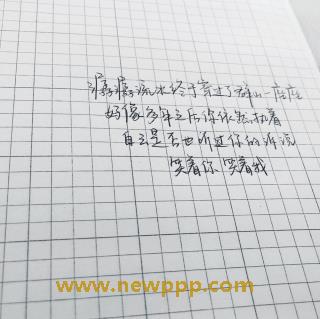 潺潺流水终于穿过了群山一座座
好像多年之后你依然执着
白云是否也听过你的诉说
笑着你 笑着我
www.newppp.com